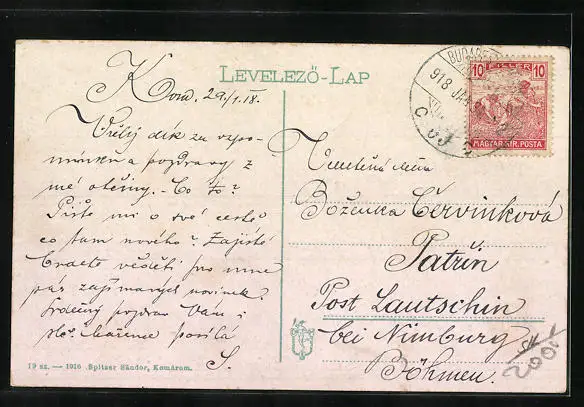 LEVELEZŐ-LAP
Kom, 29/1. 18.
Vřelý dík za vzpo-
mínku a pozdravy z
mé otčiny. - Co to?
Pište mi o své cestě
co tam nového? Zajisté
budete věděti pro mne
pár zajímavých novinek.
Srdečný pozdrav Vám i
sl. Mařence posílá
S.
19 sz. — 1916 Spitzer Sándor, Komárom.
BUDAPEST
918 JAN
10 FILLÉR 10
MAGYAR KIR. POSTA
Vzácná slečna
Boženka Červinková
Patřín
Post Lautschin
bei Nimburg
Böhmen.
2000